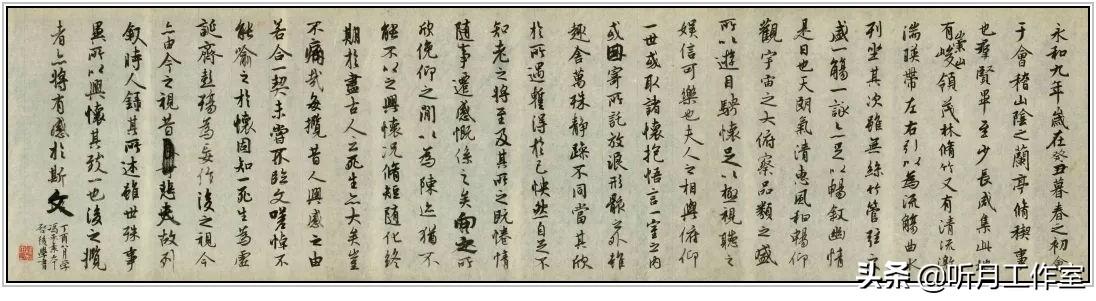 永和九年歲在癸丑暮春之初會
于會稽山陰之蘭亭脩稧事
也羣賢畢至少長咸集此地
有崇山峻領茂林脩竹又有清流激
湍暎帶左右引以為流觴曲水
列坐其次雖無絲竹管弦之
盛一觴一詠亦足以暢敘幽情
是日也天朗氣清惠風和暢仰
觀宇宙之大俯察品類之盛
所以遊目騁懷足以極視聽之
娛信可樂也夫人之相與俯仰
一世或取諸懷抱悟言一室之內
或因寄所託放浪形骸之外雖
趣舍萬殊靜躁不同當其欣
於所遇暫得於己怏然自足不
知老之將至及其所之既惓情
隨事遷感慨係之矣向之所
欣俛仰之閒以為陳迹猶不
能不以之興懷況脩短隨化終
期於盡古人云死生亦大矣豈
不痛哉每攬昔人興感之由
若合一契未嘗不臨文嗟悼不
能喻之於懷固知一死生為虛
誕齊彭殤為妄作後之視今
亦由今之視昔悲夫故列
敘時人錄其所述雖世殊事
異所以興懷其致一也後之攬
者亦將有感於斯文
丁酉八月學
头条 @听月工作室